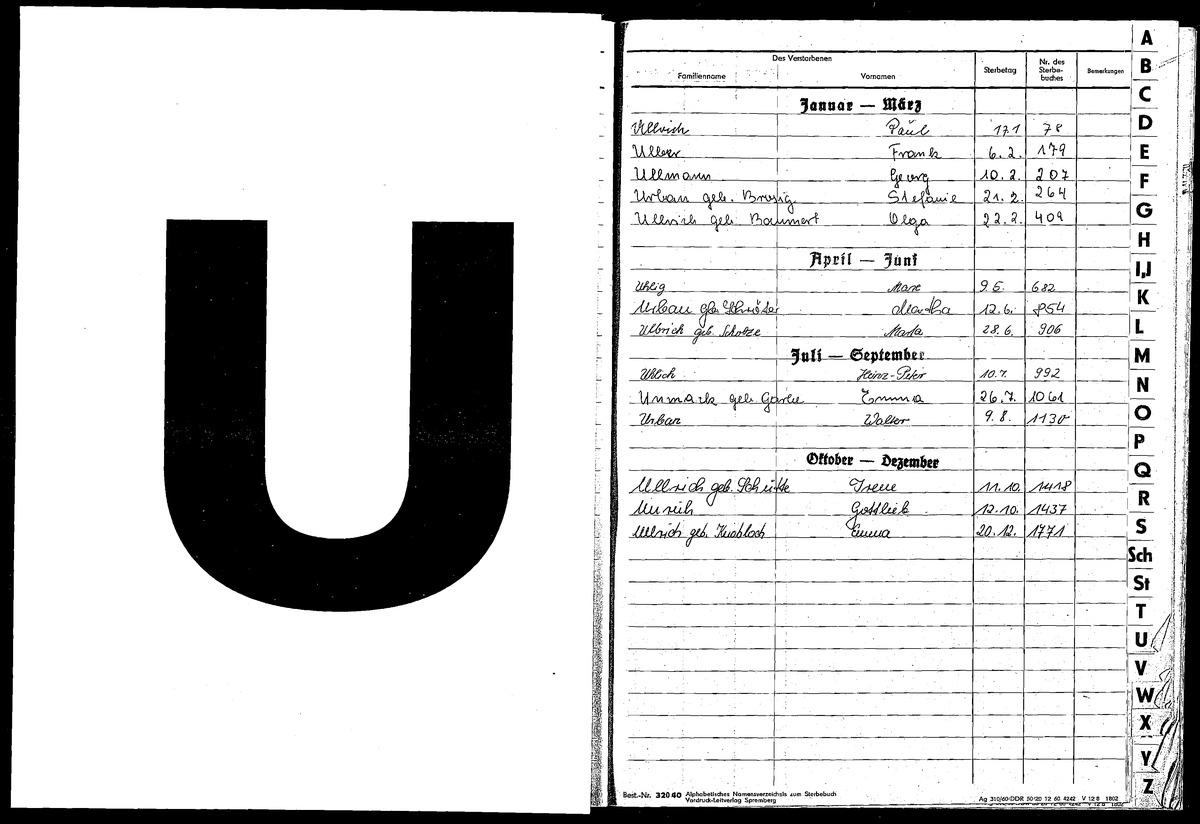 U
Des Verstorbenen
Familienname Vornamen Sterbetag Nr. des Sterbe-buches Bemerkungen
Januar — März
Ullrich Paul 17.1 78
Frank 6.2. 179
Ullmann Georg 10.2. 207
Urban geb. Brosig Stefanie 21.2. 264
Ullrich geb. Baumert Olga 22.2. 409
April — Juni
Uhlig 9.5. 682
Urban geb. Schröter Martha 12.6. 854
Ullrich geb. Scholze 28.6. 906
Juli — September
Heinz-Peter 10.7. 992
Unmack geb. Emma 26.7. 1061
Urban Walter 9.8. 1130
Oktober — Dezember
Ullrich geb. Schütte Irene 11.10. 1418
Gottlieb 12.10. 1437
Ullrich geb. Knobloch Emma 20.12. 1771
Best.-Nr. 320 40 Alphabetisches Namensverzeichnis zum Sterbebuch
Vordruck-Leitverlag Spremberg
Ag 310/60-DDR 50-20 12 60 4242 V 12 8 1802
A
B
C
D
E
F
G
H
I,J
K
L
M
N
O
P
Q
R
S
Sch
St
T
U
V
W
X
Y
Z